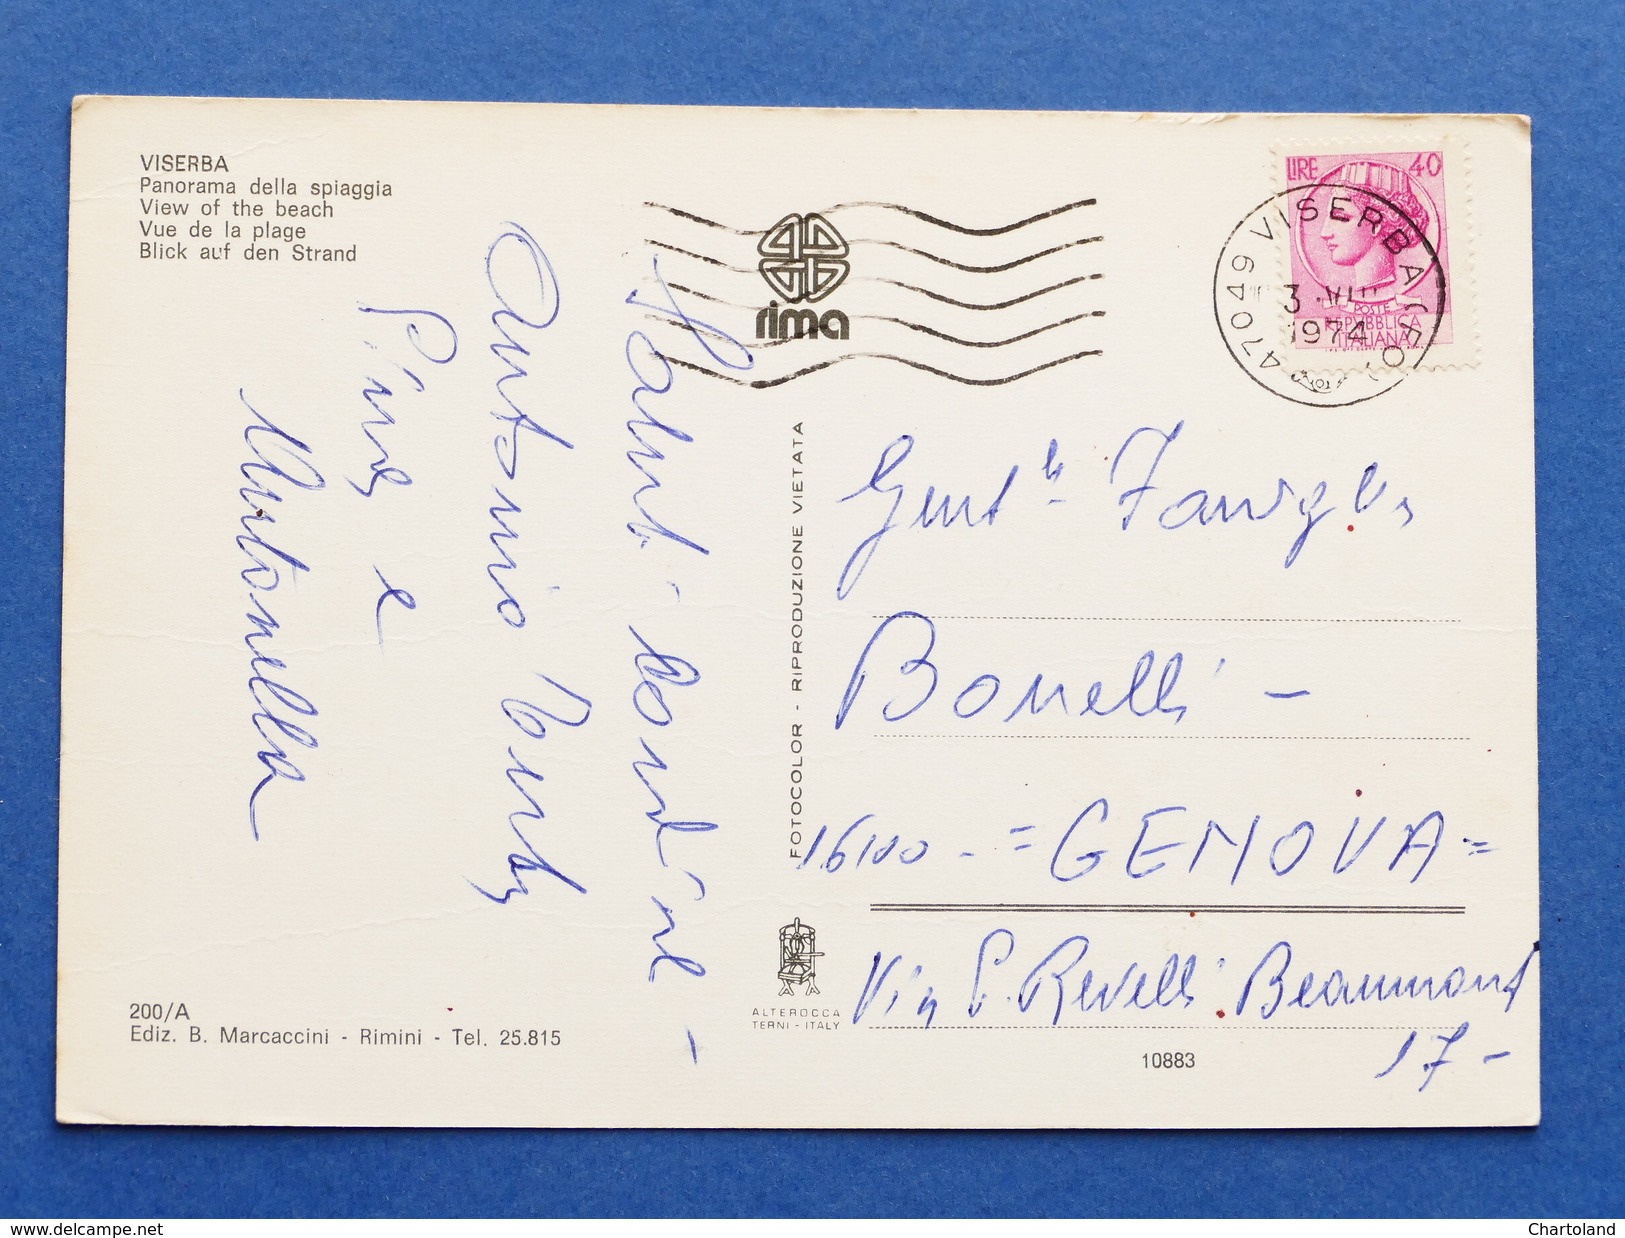 VISERBA
Panorama della spiaggia
View of the beach
Vue de la plage
Blick auf den Strand
rima
LIRE 40
POSTE
REPVBBLICA
ITALIANA
47049 VISERBA (FO)
3 VII
1974
Saluti cordiali -
Antonio
Pina e
Antonella
FOTOCOLOR - RIPRODUZIONE VIETATA
Gent le Famiglia
Bonelli -
16100 - = GENOVA =
Via P. Revelli Beaumont
17 -
ALTEROCCA
TERNI - ITALY
10883
200/A
Ediz. B. Marcaccini - Rimini - Tel. 25.815
www.delcampe.net
Chartoland